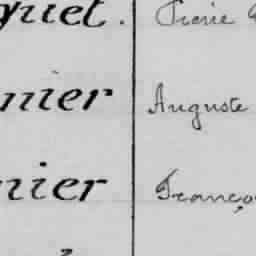 quet. Pierre
nier Auguste
nier Franço